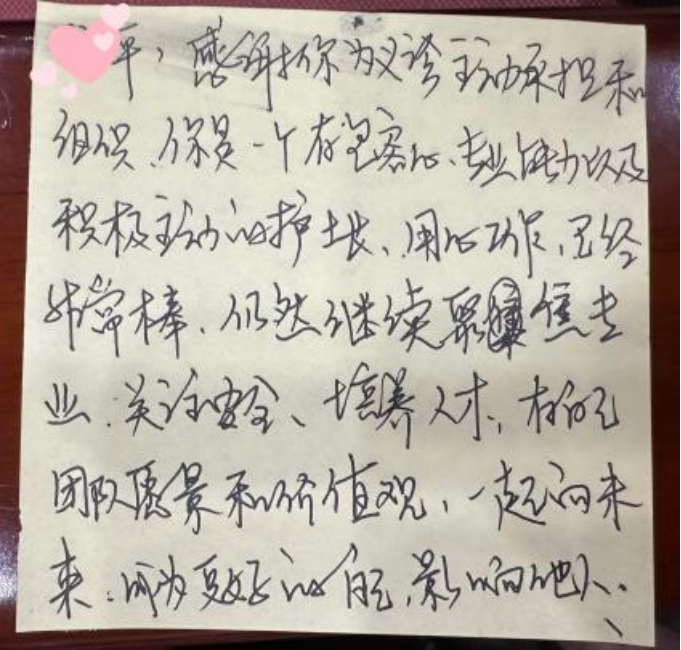 平，感谢你为义诊主动承担和
组织、你是一个有包容心、专业能力以及
积极主动的护士长、用心工作，已经
非常棒、仍然继续聚焦专
业、关注安全、培养人才、
团队愿景和价值观，一起向未
来、成为更好的自己，影响他人、